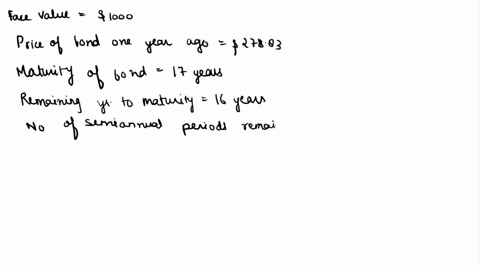 Face value = $1000
Price of bond one year ago = $278.83
Maturity of bond = 17 years
Remaining yr. to maturity = 16 years
No of semiannual periods remai